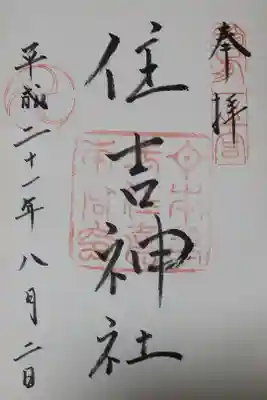 奉拝
住吉神社
平成二十一年八月二日